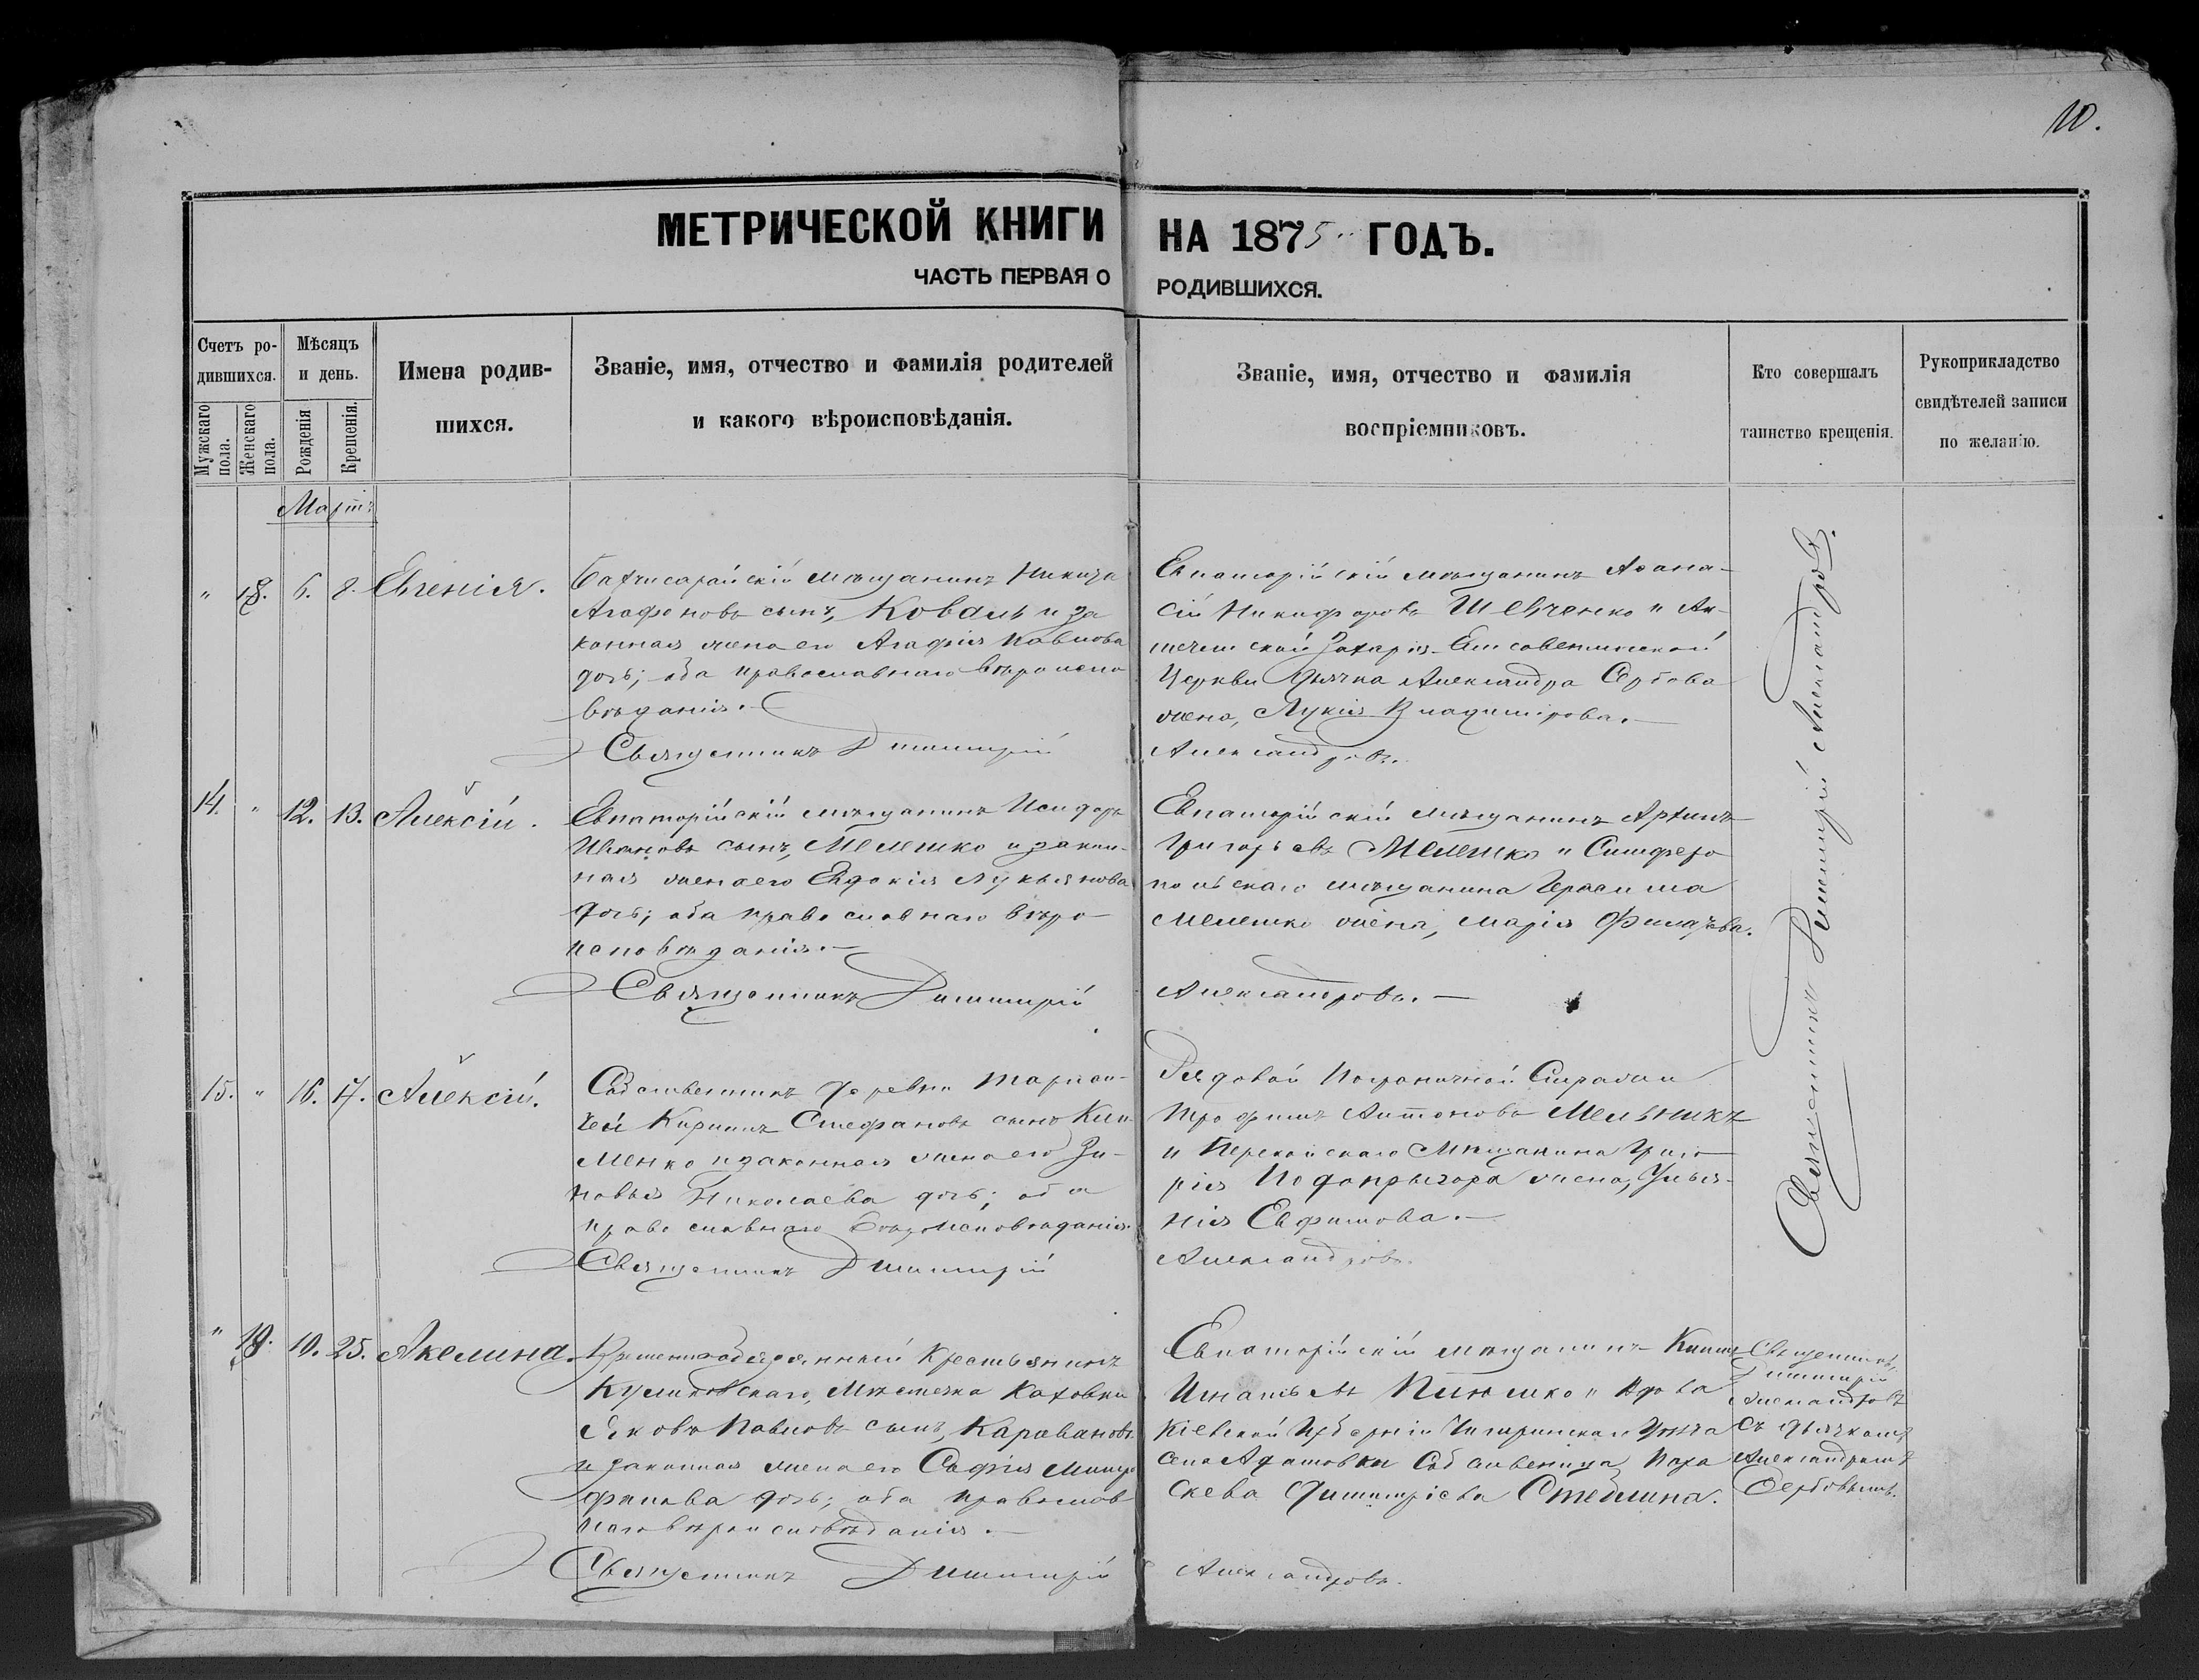 10.
МЕТРИЧЕСКОЙ КНИГИ НА 1875 ГОДЪ.
ЧАСТЬ ПЕРВАЯ О РОДИВШИХСЯ.
Счетъ ро-
дившихся.
Мужскаго пола.
Женскаго пола.
Мѣсяцъ
и день.
Рожденія
Крещенія.
Имена родив-
шихся.
Званіе, имя, отчество и фамилія родителей
и какого вѣроисповѣданія.
Званіе, имя, отчество и фамилія
воспріемниковъ.
Кто совершалъ
таинство крещенія.
Рукоприкладство
свидѣтелей записи
по желанію.
Мартъ
" 18. 6. 8. Евгенія.
Бахчисарайскій мѣщанинъ Никита
Агафоновъ сынъ, Коваль и за
конная жена его Агафія Павлова
дочь; оба православнаго вѣроиспо
вѣданія.
Священникъ Димитрій
Евпаторійскій мѣщанинъ Афана-
сій Никифоровъ Шевченко и Ак-
мечетской Захаріе-Елисаветинской
Церкви Дьячка Александра Сербова
жена, Лукія Владимірова.
Александровъ.
14. " 12. 13. Алексій.
Евпаторійскій мѣщанинъ Исидоръ
Ивановъ сынъ, Мелешко и закон-
ная жена его Евдокія Лукьянова
дочь; оба православнаго вѣро-
исповѣданія.
Священникъ Димитрій
Евпаторійскій мѣщанинъ Архипъ
Григорьевъ Мелешко и Симферо
польскаго мѣщанина Герасима
Мелешко жена, Марія
Александровъ.
15. " 16. 17. Алексій.
Собственникъ деревни
Кирилъ Стефановъ сынъ Кли-
менко и законная жена его Зи-
новья Николаева дочь; оба
православнаго вѣроисповѣданія.
Священникъ Димитрій
Рядовой Пограничной Стражи
Трофимъ Антоновъ Мельникъ
и Перекопскаго Мѣщанина Григо
рія Подопрыгора жена, Улья-
нія Евфимова.
Александровъ.
Священникъ Димитрій Александровъ.
" 19. 10. 25. Акелина.
Временнообязанный Крестьянинъ
Куликовскаго, Мѣстечка Каховки
Яковъ Павловъ сынъ, Каравановъ
и законная жена его Софія Митро
фанова дочь; оба православ
наго вѣроисповѣданія.
Священникъ Димитрій
Евпаторійскій мѣщанинъ
Игнатьевъ и вдова
Кіевской Губерніи Чигиринскаго Уѣзда
Села Адамовки Собственница Пара
скева Димитріева Стеблина.
Александровъ.
Священникъ
Димитрій
Александровъ
съ дьячкомъ
Александромъ
Сербовымъ.